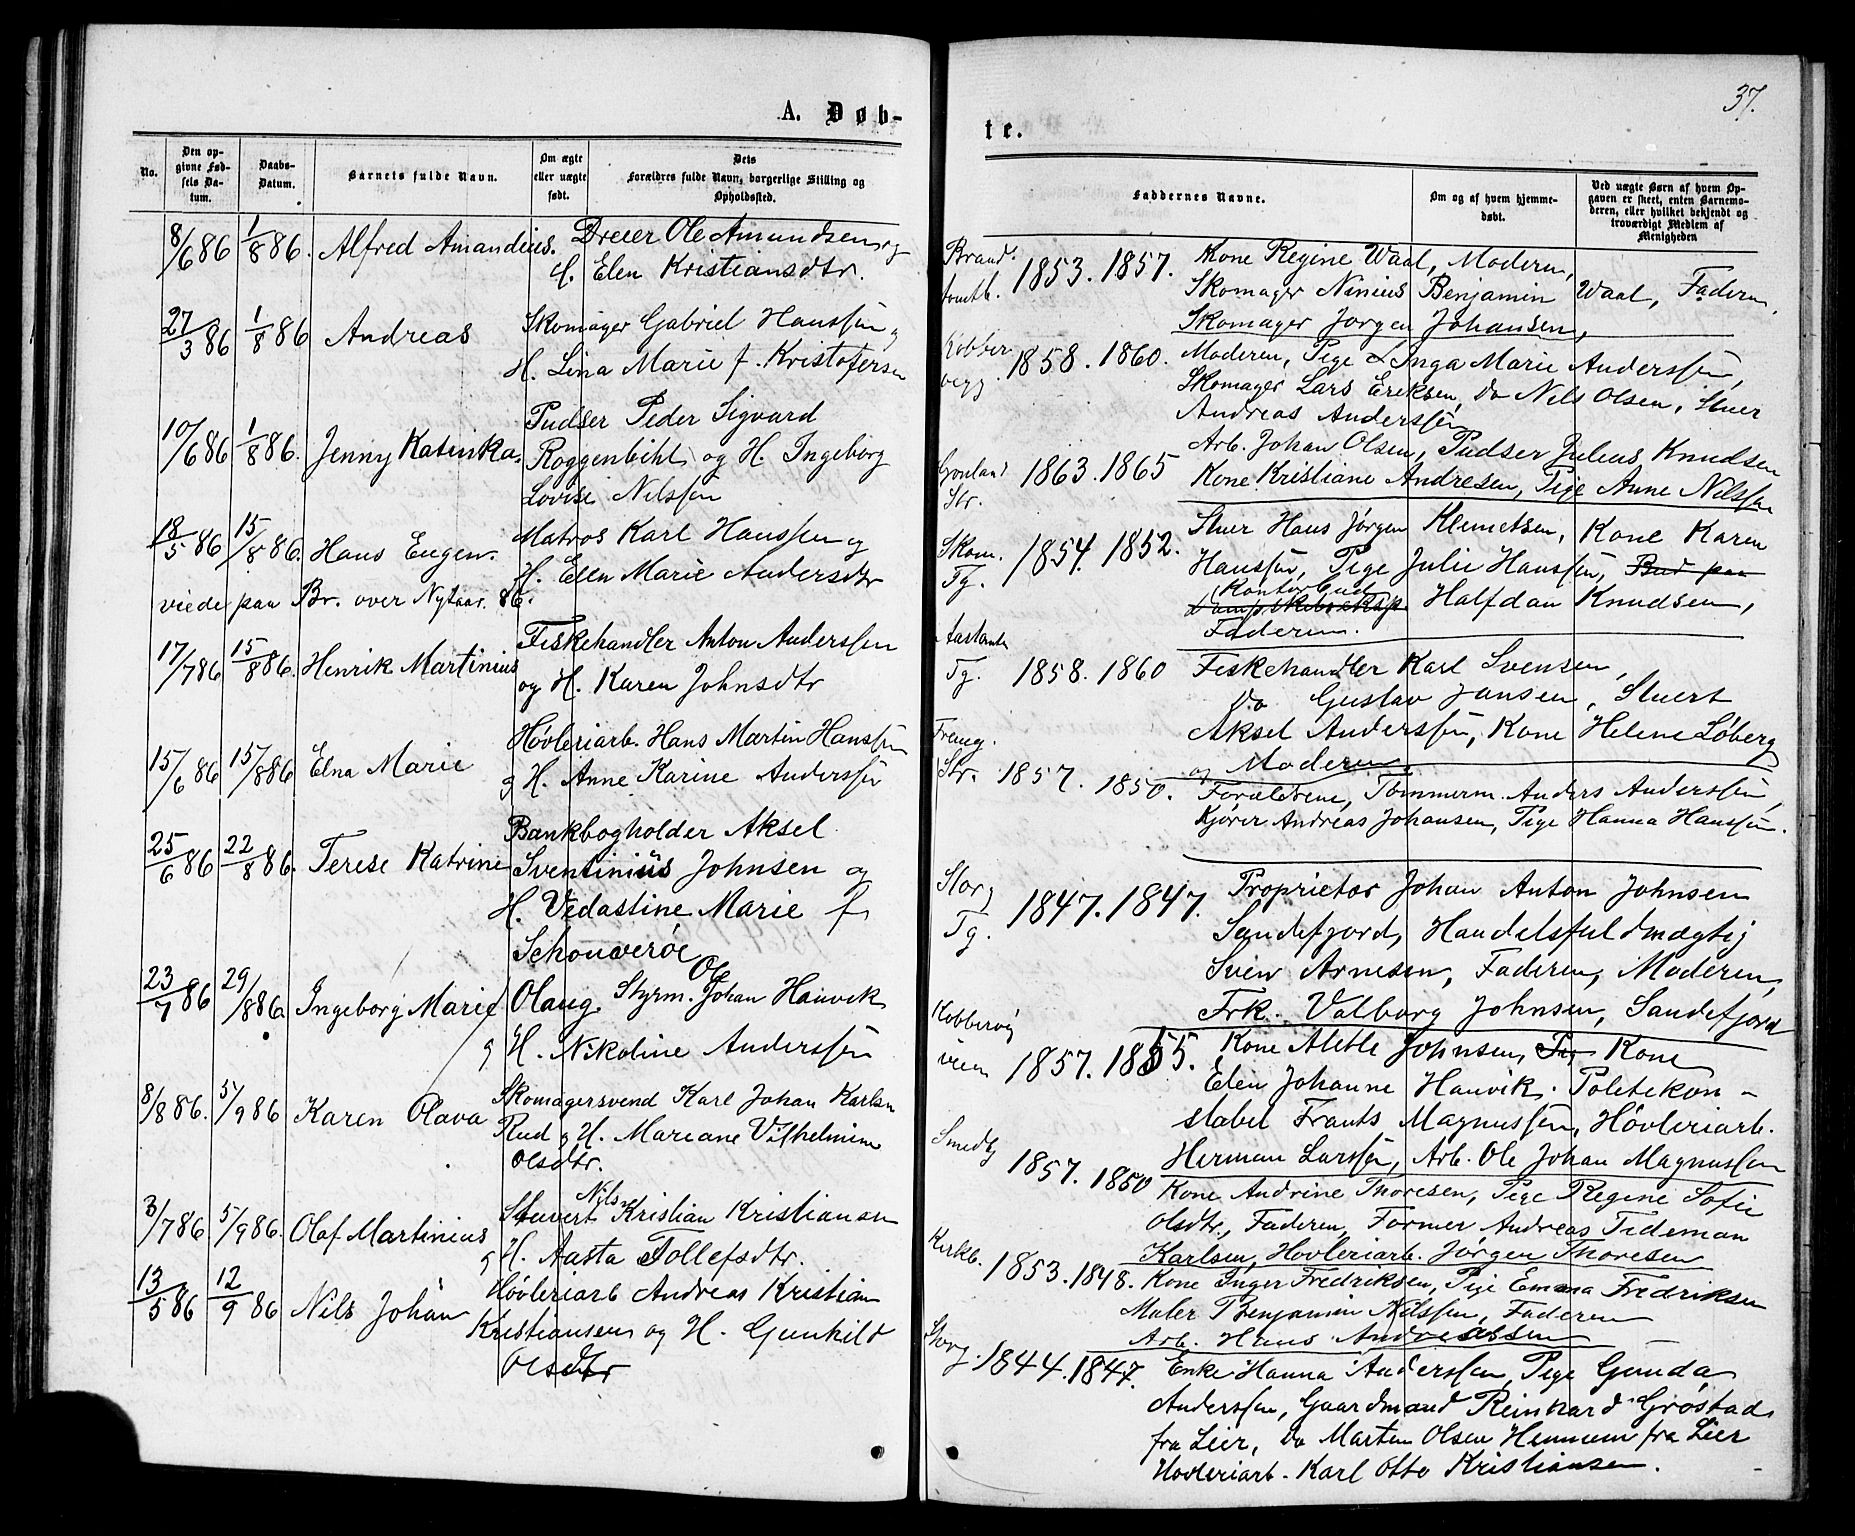 A. Døb-
No.
Den op-
givne Fød-
sels Da-
tum.
Daabs-
Datum.
Barnets fulde Navn.
Om ægte
eller uægte
født.
Dets
Forældres fulde Navn, borgerlige Stilling og
Opholdssted.
8/6 86 1/8 86. Alfred Amandius. Dreier Ole Amundsen og
H. Elen Kristiansdtr.
27/3 86 1/8 86 Andreas Skomager Gabriel Hanssen g
H. Lina Marie f. Kristofersen
10/6 86 1/8 86. Jenny Katinka. Pudser Peder Sigvard
Roggenbihl og H. Ingeborg
Lovise Nilssen
18/5 86 15/8 86. Hans Eugen. Matros Karl Hanssen og
H. Ellen Marie Andersdtr
viede paa Br. over Nytaar. 86.
17/7 86 15/8 86. Henrik Martinius Fiskehandler Anton Anderssen
og H. Karen Johnsdtr
15/6 86 15/8 86 Elna Marie Høvleriarb. Hans Martin Hanssen
g H. Anne Karine Anderssen
25/6 86 22/8 86. Terese Katrine Bankbogholder Aksel
Sventinius Johnsen og
H. Vedastine Marie f
Schouverøe
23/7 86 29/8 86. Ingeborg Marie Olaug Styrm. Ole Johan Hanvik
g H. Nikoline Anderssen
8/8 86. 5/9 86 Karen Olava Skomagersvend Karl Johan Karlsn
Rud g H. Mariane Vilhelmine
Olsdtr.
3/7 86 5/9 86. Olaf Martinius Stuvert Nils Kristian Kristiansen
g H. Aasta Tollefsdtr.
13/5 86 12/9 86 Nils Johan Høvleriarb Andreas Kristian
Kristiansen og H. Gunhild
Olsdtr
37.
te.
Faddernes Navne.
Om og af hvem hjemme-
døbt.
Ved uægte Børn af hvem Op-
gaven er skeet, enten Barnemo-
deren, eller hvilket bekjendt og
troværdigt Medlem af
Menigheden
Brand.
tomtb. 1853. 1857. Kone Regine Waal, Moderen,
Skomager Ninius Benjamin Waal, Faderen
Skomager Jørgen Johansen,
Kobber
vigg. 1858. 1860. Moderen, Pige Inga Marie Anderssen,
Skomager Lars Eriksen, Do Nils Olsen, Stuer
Andreas Anderssen
Arb. Johan Olsen, Pudser Julius Knudsen
Gronland
Str. 1863. 1865 Kone Kristiane Andresen, Pige Anne Nilssen
Skom.
Tg. 1854. 1852. Stuer Hans Jørgen Klemetsen, Kone Karen
Hanssen, Pige Julie Hanssen, Bud paa
Kontorbud
Dampskibsexsp. Halfdan Knudsen,
Faderen.
Tg. 1858. 1860 Fiskehandler Karl Svensen,
Do Gustav Jansen, Stuert
Aksel Anderssen, Kone Helene Løberg
og Moderen.
Str. 1857. 1850. Forældrene, Tømmerm. Anders Anderssen,
Kjører Andreas Johansen, Pige Hanna Hanssen.
Storg
Tg. 1847. 1847. Proprietær Johan Anton Johnsen
Sandefjord, Handelsfuldmægtig
Svein Arnesen, Faderen, Moderen,
Frk. Valborg Johnsen, Sandefjord
Kobbervig
vien 1857. 1855. Kone Alette Johnsen, Pig Kone
Elen Johanne Hanvik, Politikon-
stabel Frants Magnussen, Høvleriarb.
Herman Larssen, Arb. Ole Johan Magnussen
Smedbg 1857. 1850 Kone Andrine Thoresen, Pige Regine Sofie
Olsdtr, Faderen, Former Andreas Tideman
Karlsen, Hovleriarb. Jørgen Thoresen
Kirkb. 1853. 1848. Kone Inger Fredriksen, Pige Emma Fredriksen
Maler Benjamin Nilssen, Faderen
Arb. Hans Andreassen
Storg. 1844. 1847. Enke Hanna Anderssen, Pige Gunda
Anderssen, Gaardmand Reinhard Grøstad
fra Lier, Do Marten Olsen Hennum fra Lier
Hovleriarb. Karl Otto Kristiansen.